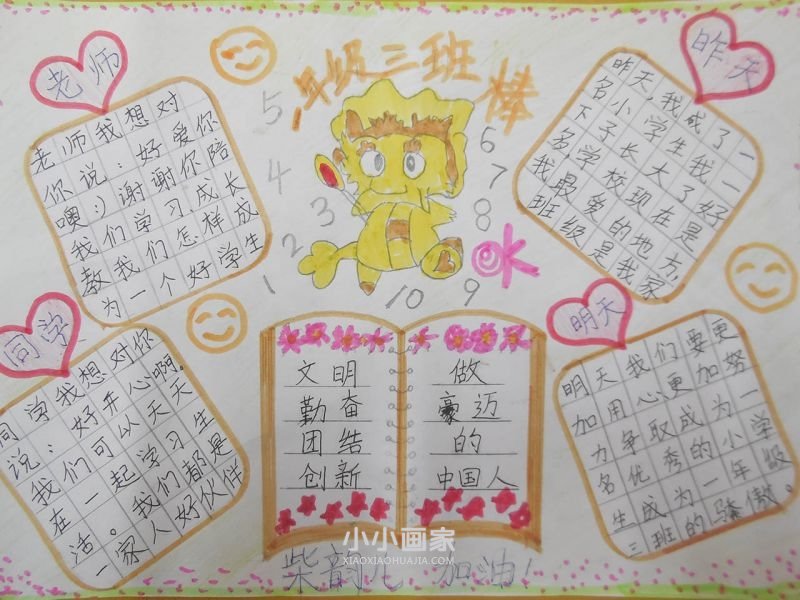 一年级三班棒
老师
老师我想对
你说:好爱你
噢:)谢谢你陪
我们学习,成长
教我们怎样成
为一个好学生
昨天
昨天,我成了一
名小学生我一
下子长大了好
多,学校现在是
我最爱的地方,
班级是我家
1 2 3 4 5 6 7 8 9 10
OK
同学
同学我想对你
说:好开心啊。
我们可以天天
在一起学习生
活。我们都是
一家人好伙伴
文明
勤奋
团结
创新
做
豪迈
的
中国人
明天
明天我们要更
加用心、更加努
力争取成为一
名优秀的小学
生成为一年级
三班的骄傲。
小小画家
XIAOXIAOHUAJIA.COM
柴韵儿 加油!